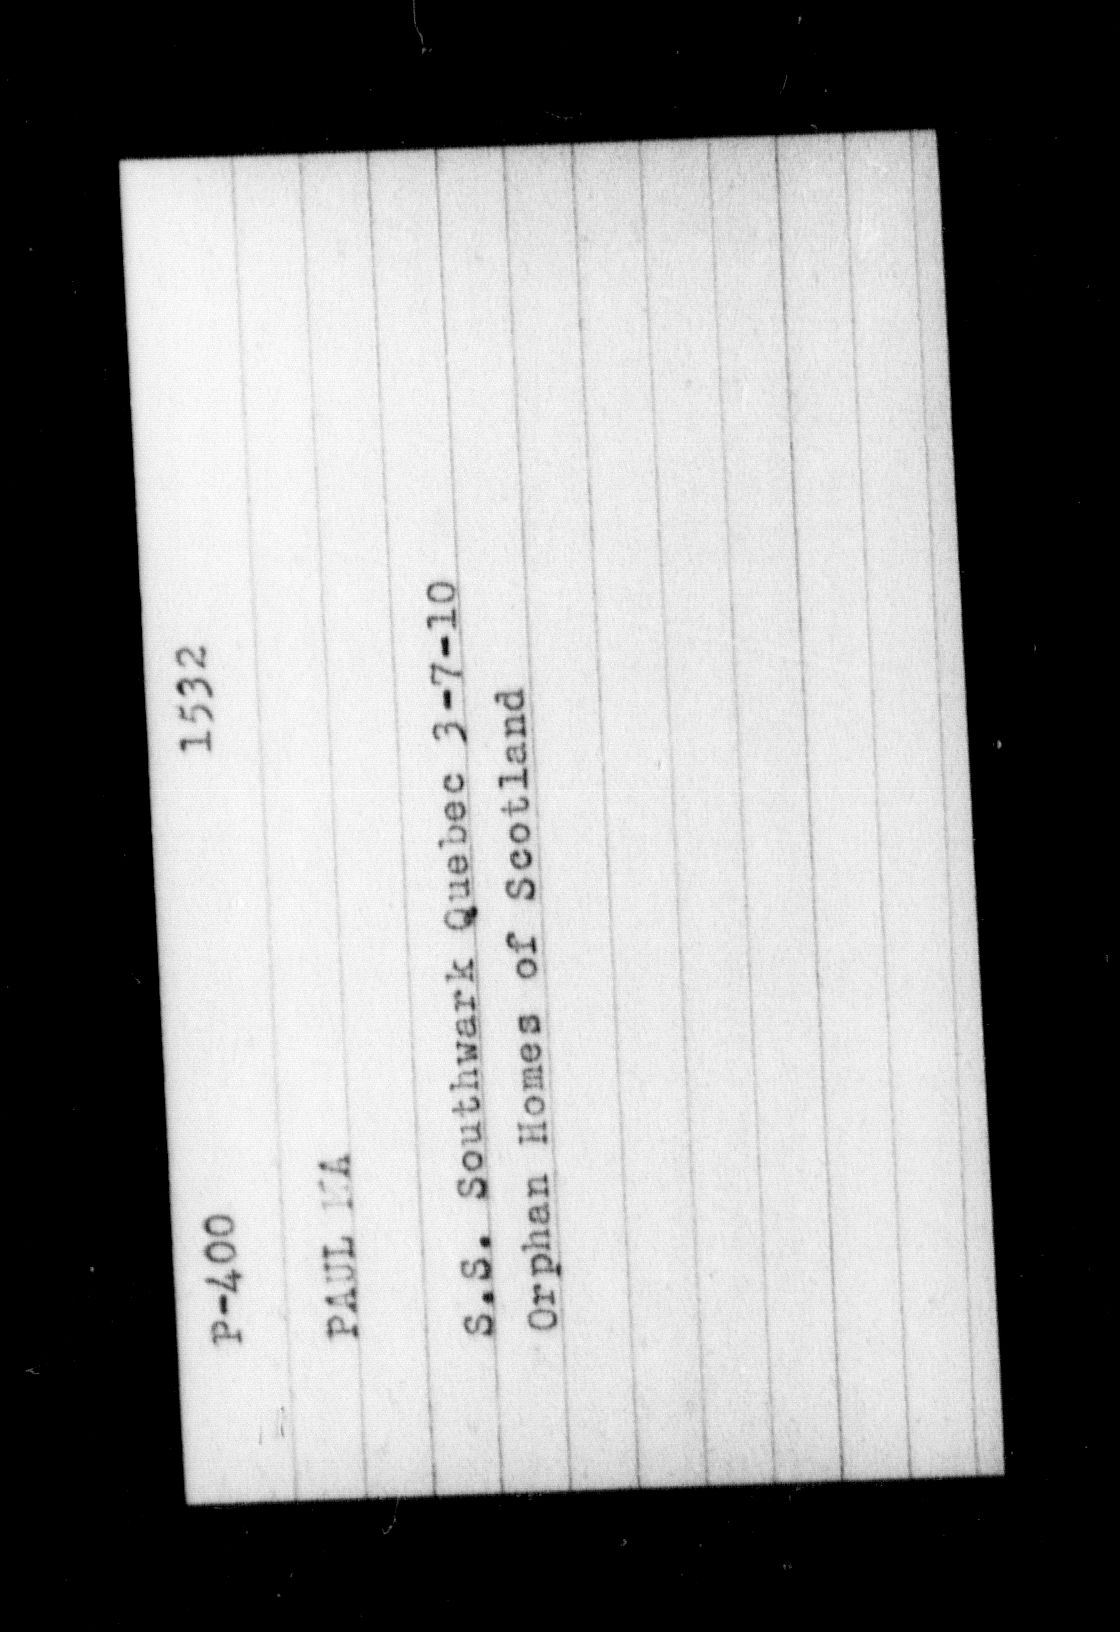 P-400 1532
PAUL
S.S. Southwark Quebec 3-7-10
Orphan Homes of Scotland